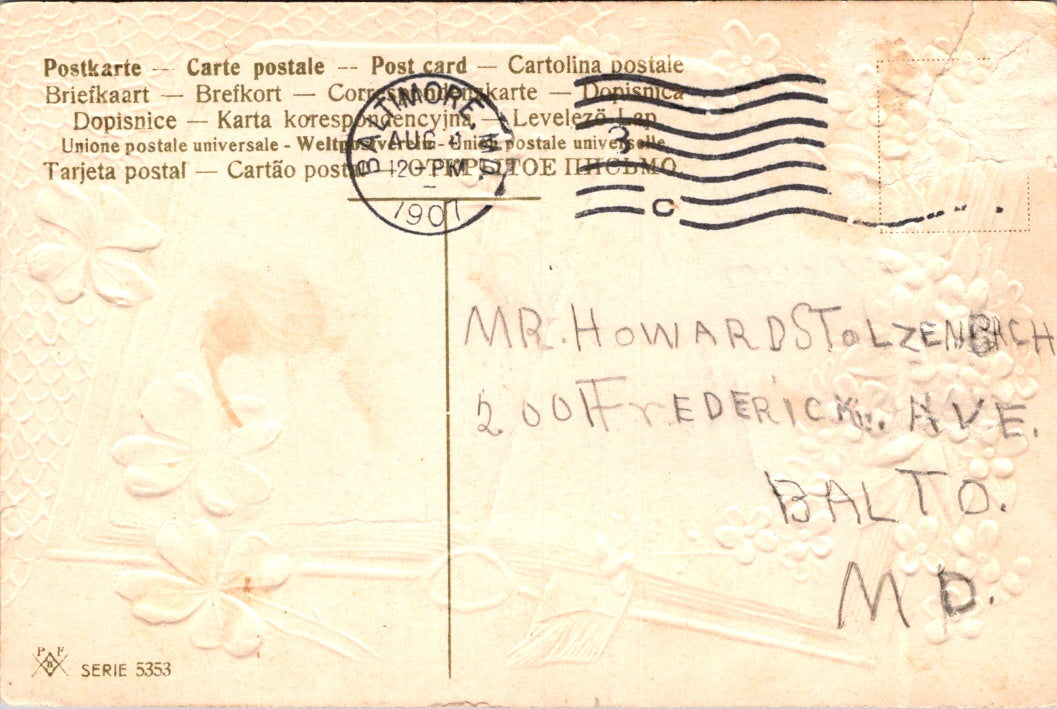 Postkarte — Carte postale -- Post card — Cartolina postale
Briefkaart — Brefkort — Correspondenzkarte — Dopisnica
Dopisnice — Karta korespondencyjna — Levelező Lap
Unione postale universale - Weltpostverein - Union postale universelle
Tarjeta postal — Cartão postal — ОТКРЫТОЕ ПИСЬМО.
BALTIMORE, MD.
AUG
12 - PM
1907
3
C
MR. HOWARD STOLZENBACH
2001 FrEDERICK AVE.
BALTO.
MD.
P F
B
SERIE 5353